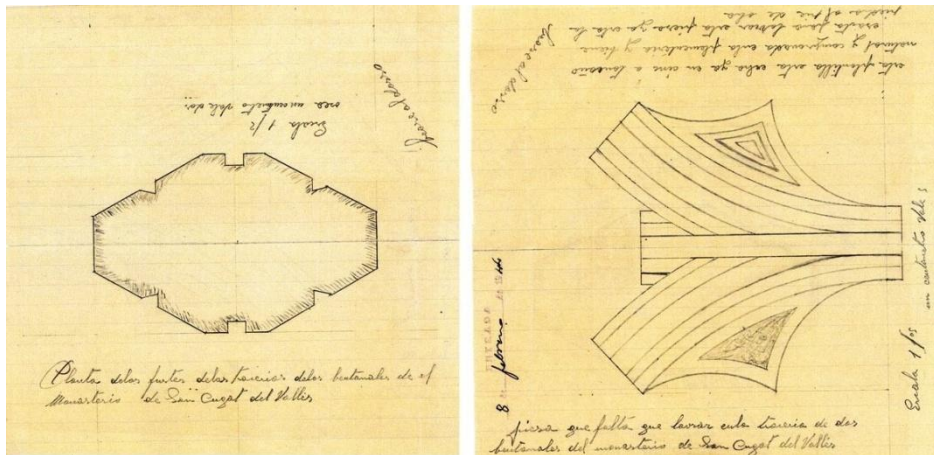 Escala 1/2
osea un centimetro vale dos
al dorso
Planta delos fustes delas tracerias delos bentanales de el
Monasterio de San Cugat del Vallés
al dorso
esta plantilla esta echa ya en cinc a tamaño
natural y comprovada enla plementeria y tiene
exacta para labrar esta piesa ya esta la
piedra al pie de obra
Escala 1 por 5
un centimetro vale 5
ENTRADA
8 febrero de 1944
piesa que falta que labrar enla traceria de dos
bentanales del monasterio de San Cugat del Vallés